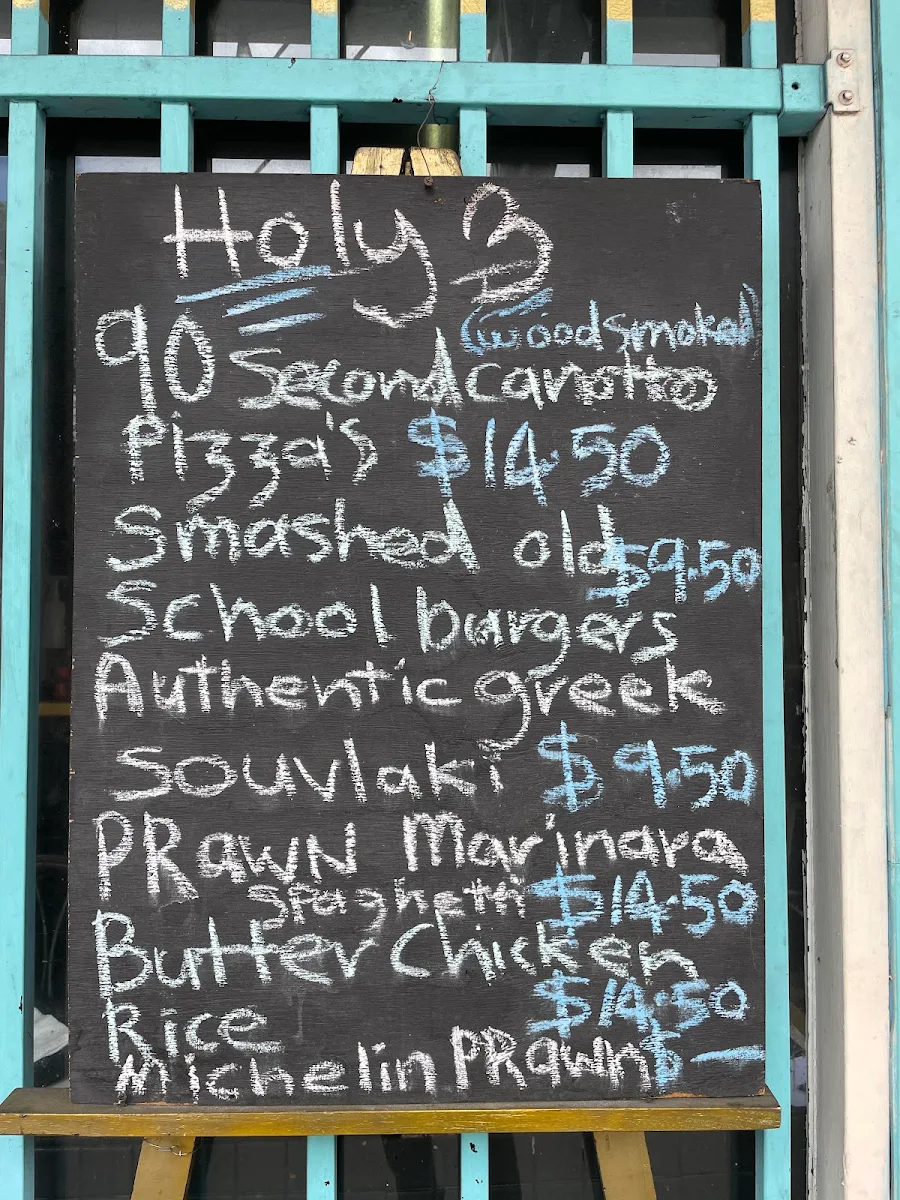 Holy 3
(woodsmoked)
90 Second canotto
Pizza's $14.50
Smashed old $9.50
School burgers
Authentic greek
Souvlaki $9.50
PRAWN Marinara
Spaghetti $14.50
Butter Chicken
Rice $14.50
Michelin PRawn $ —